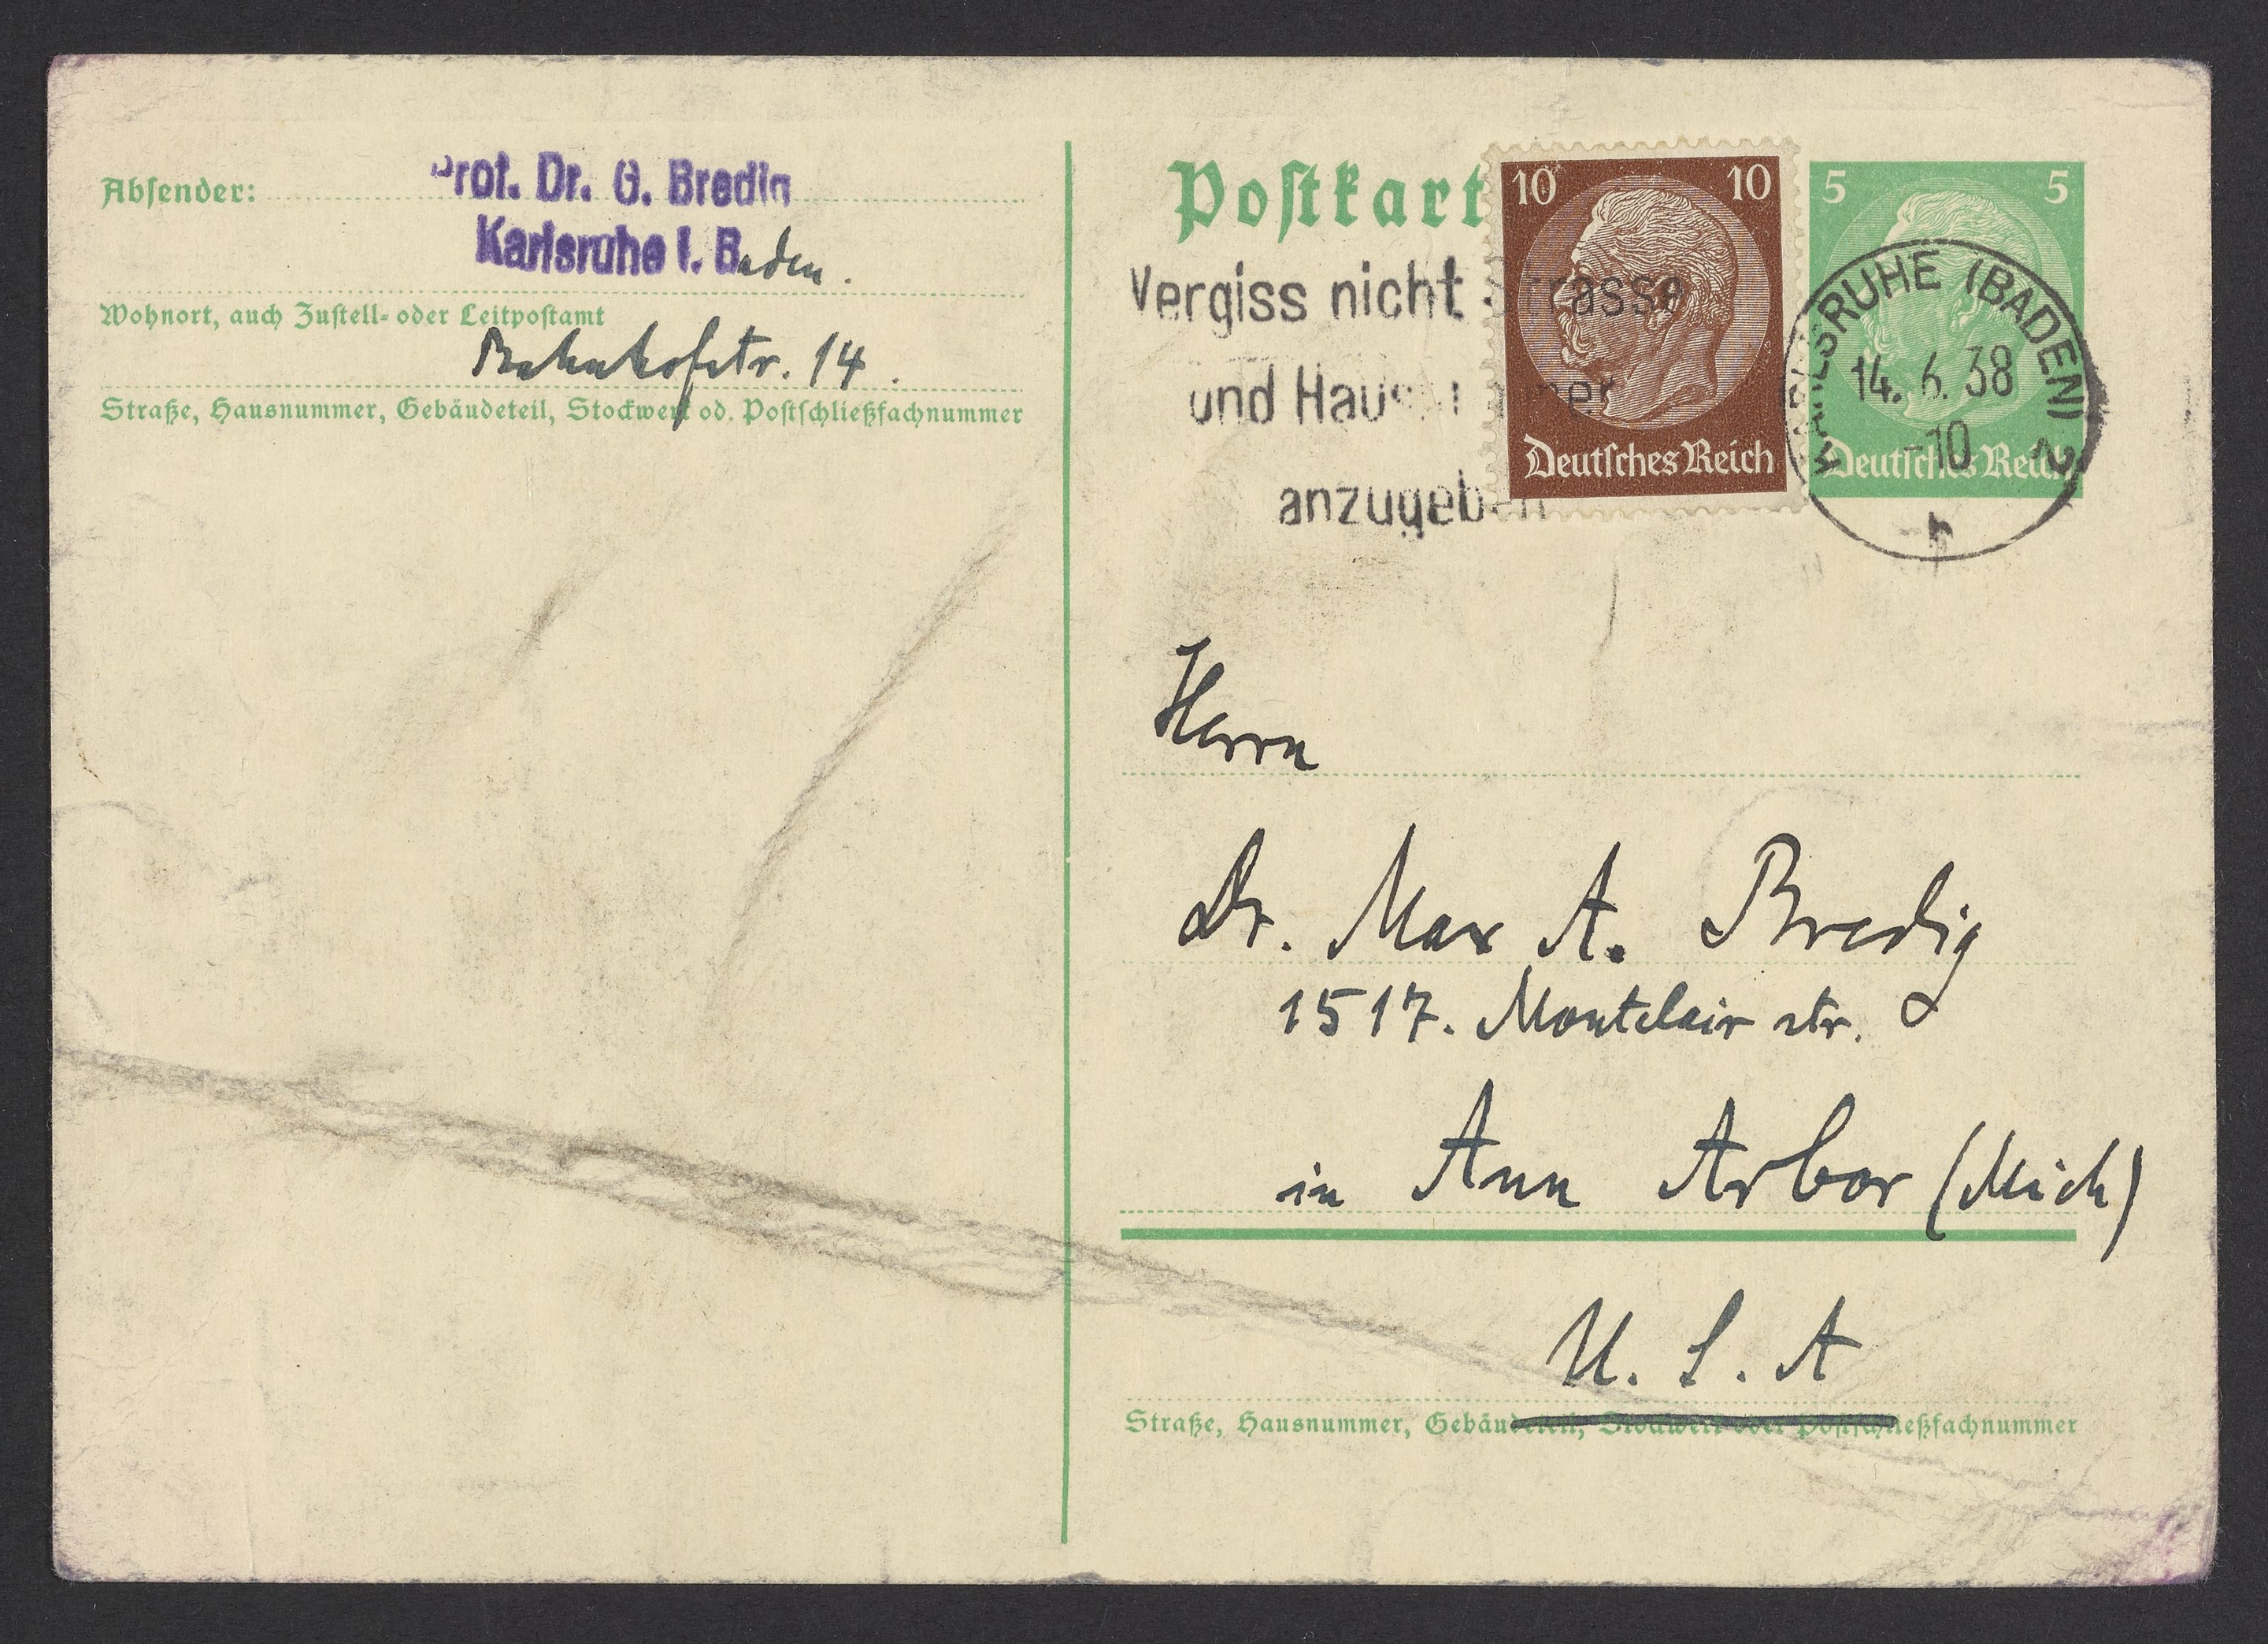 Absender:
Prof. Dr. G. Bredig
Karlsruhe i. Baden.
Wohnort, auch Zustell- oder Leitpostamt
Bahnhofstr. 14.
Straße, Hausnummer, Gebäudeteil, Stockwerk od. Postschließfachnummer
Postkart
10 10
Deutsches Reich
5 5
Deutsches Reich
Vergiss nicht Strasse
und Hausnummer
anzugeben
KARLSRUHE (BADEN) 2
14. 6. 38
-10
h
Herrn
Dr. Max A. Bredig
1517. Montclair str.
in Ann Arbor (Mich)
U. S. A
Straße, Hausnummer, Gebäudeteil, Stockwerk oder Postschließfachnummer